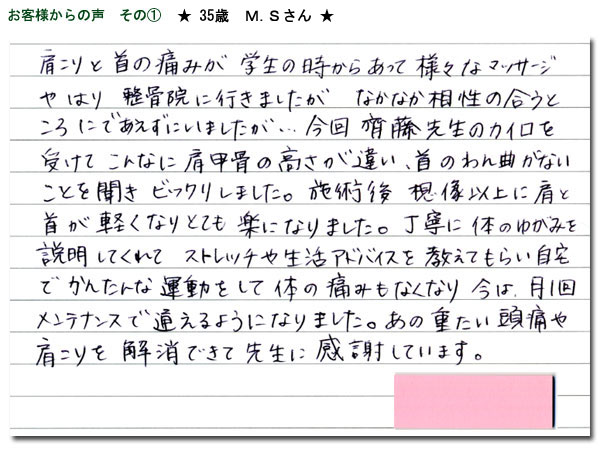 お客様からの声　その①　★ 35歳　M.Sさん ★
肩こりと首の痛みが 学生の時からあって 様々なマッサージ
やはり 整骨院に行きましたが なかなか相性の合うと
ころにであえずにいましたが… 今回 齊藤先生のカイロを
受けて こんなに肩甲骨の高さが違い、首のわん曲がない
ことを聞き ビックリしました。施術後 想像以上に肩と
首が 軽くなりとても 楽になりました。丁寧に体のゆがみを
説明してくれて ストレッチや生活アドバイスを教えてもらい自宅
で かんたんな 運動をして 体の痛みもなくなり 今は、月1回
メンテナンスで通えるようになりました。あの重たい頭痛や
肩こりを 解消できて 先生に 感謝しています。